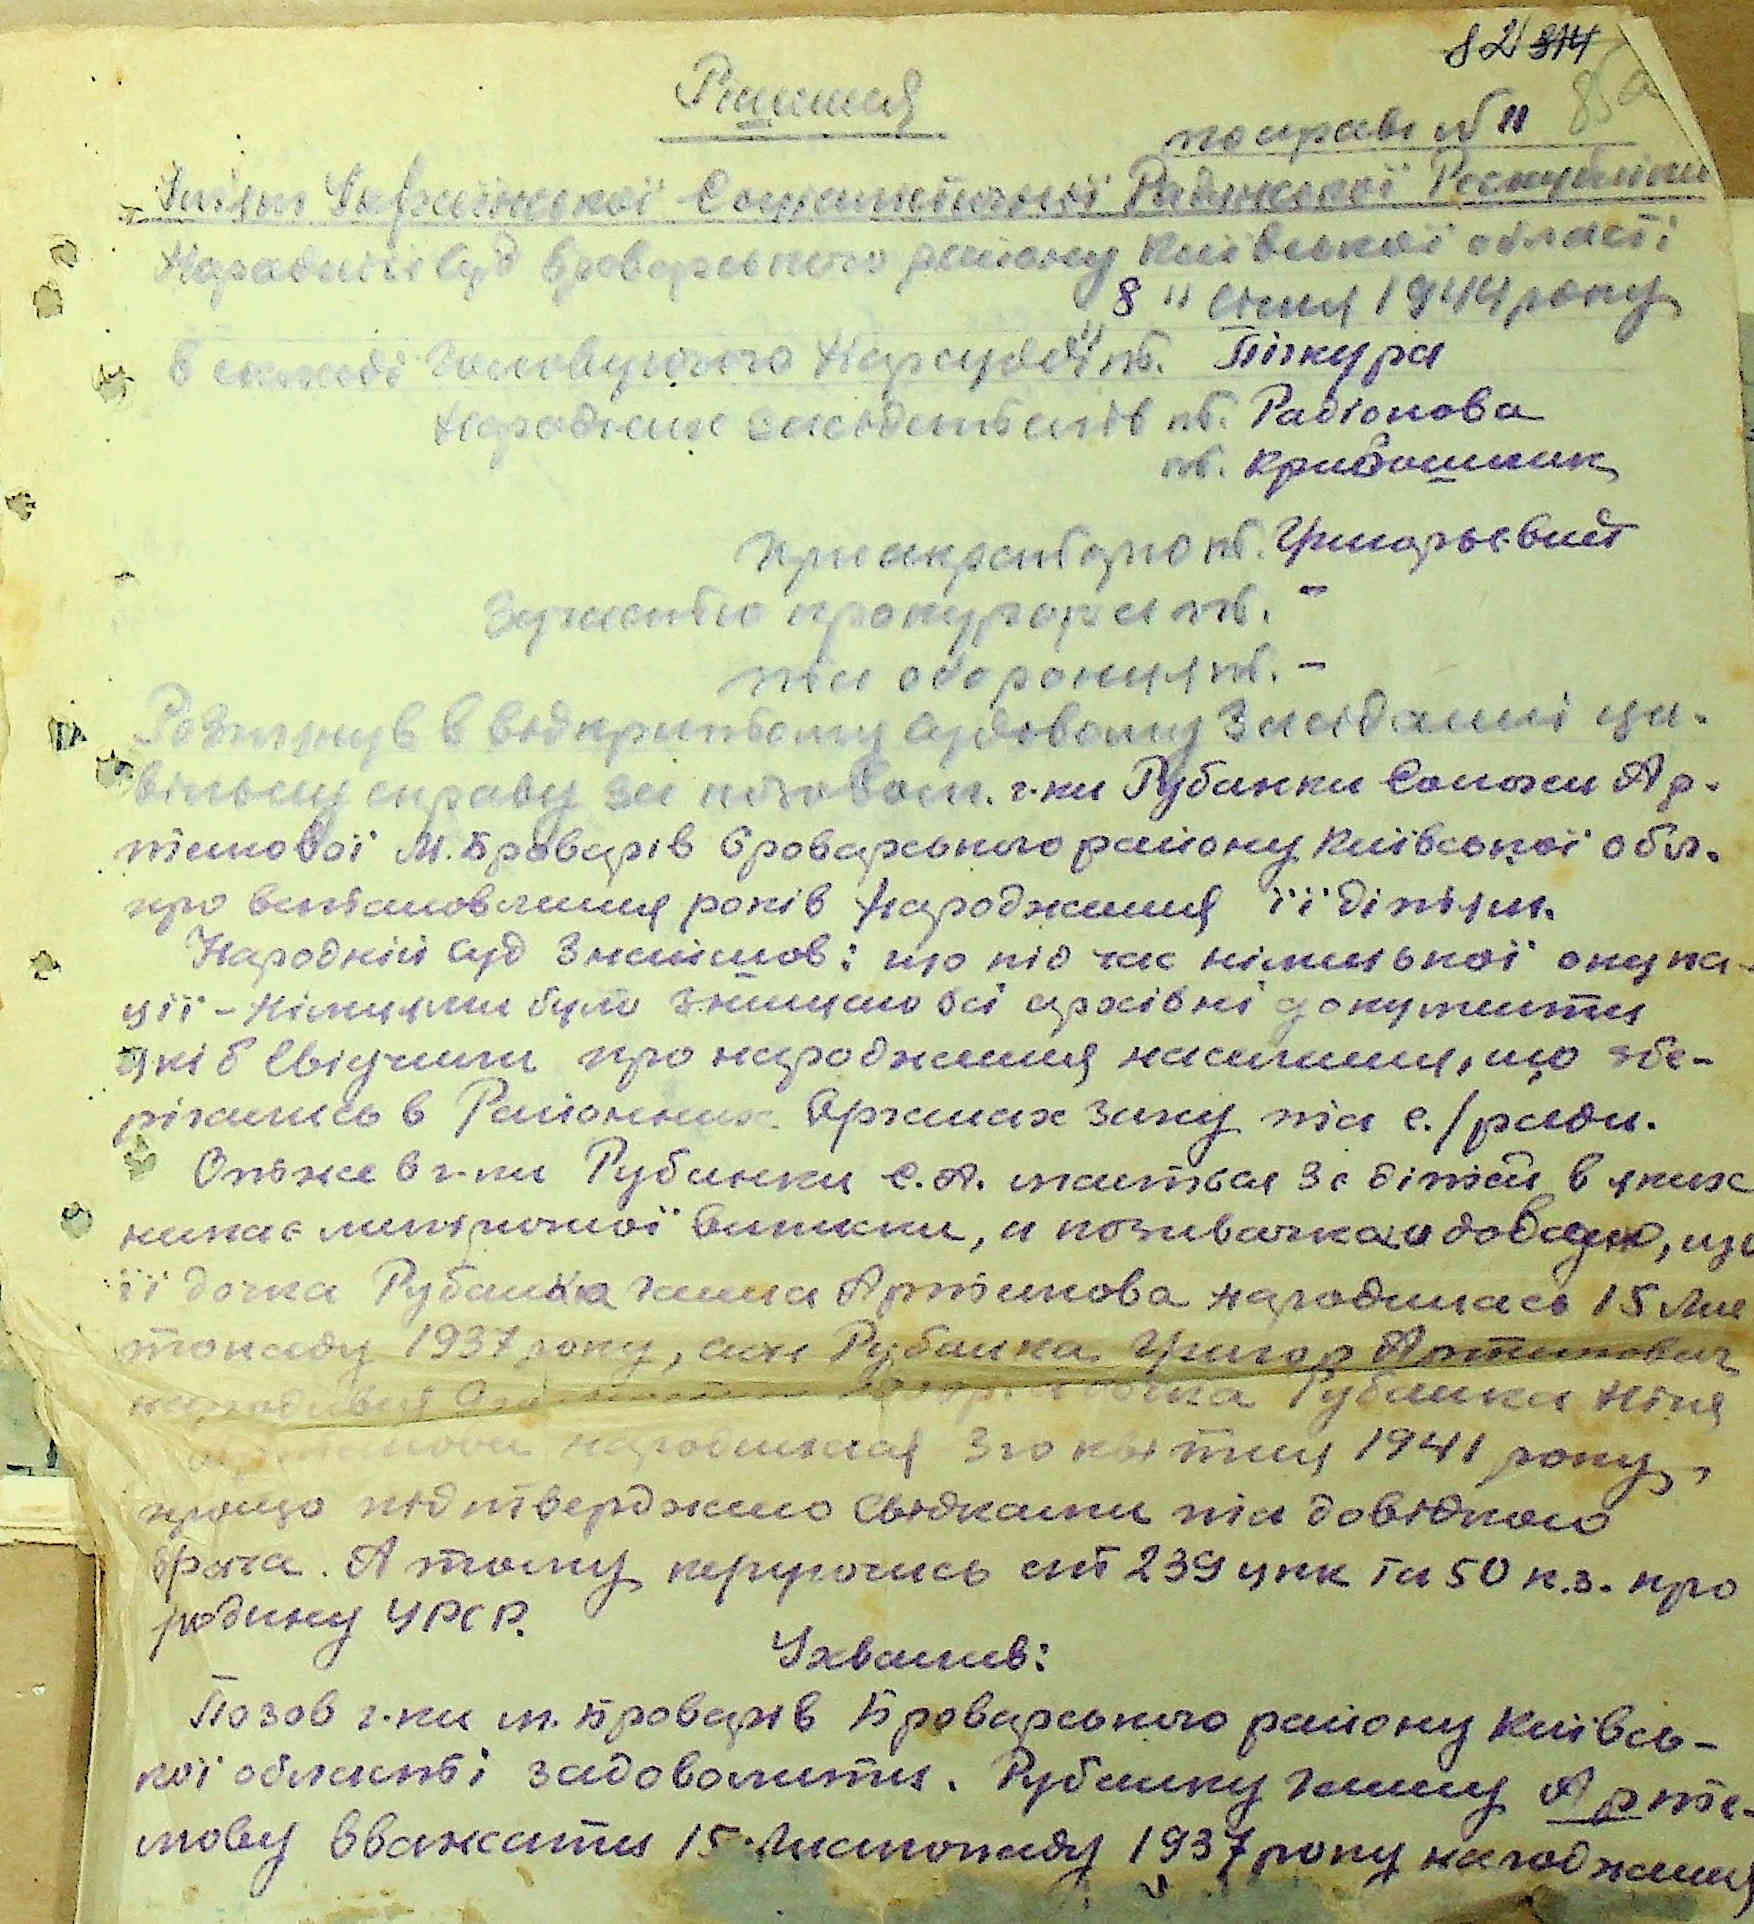 82 314
85а
Рішення
по справі №11
Ім'ям Української Соціялістичної Радянської Республіки
Народній суд Броварського району Київської області
8 " Січня 1944 року
в складі головуючого Нарсудді тов. Пінкура
Народніх засідателів тов. Радіонова
тов. Кривошиик
При секретарю тов. Григорьєвій
За участю прокурора тов. –
та оборонця тов. –
Розглянув в відкритому судовому засіданні ци-
вільну справу за позовом. г-ки Рубанки Соломеи Ар-
темової м. Броварів Броварського району Київської обл.
про встановлення років народження її дітям.
Народній суд знайшов: що під час німецької окупа-
ції – німцями було знищено всі архівні документи
які б свідчили про народження населення, що збе-
рігались в Районних Органах Загсу та с./ради.
Отже в г-ки Рубанки С.А. мається 3є дітей в яких
немає метричної виписки, а позивачка доводе, що
її дочка Рубанка Ганна Артемова народилась 15 Лис
топаду 1937 року, син Рубанка Григор Артемович
народився дочка Рубанка Ніна
Артемова народилася 3го квітня 1941 року,
про що підтверджено свідками та довідкою
врача. А тому керуючись ст 239 цпк та 50 к.з. про
родину УРСР.
Ухвалив:
Позов г-ки м. Броварів Броварського району Київсь-
кої області задоволити. Рубанку Ганну Арте-
мову вважати 15 Листопаду 1937 року народження